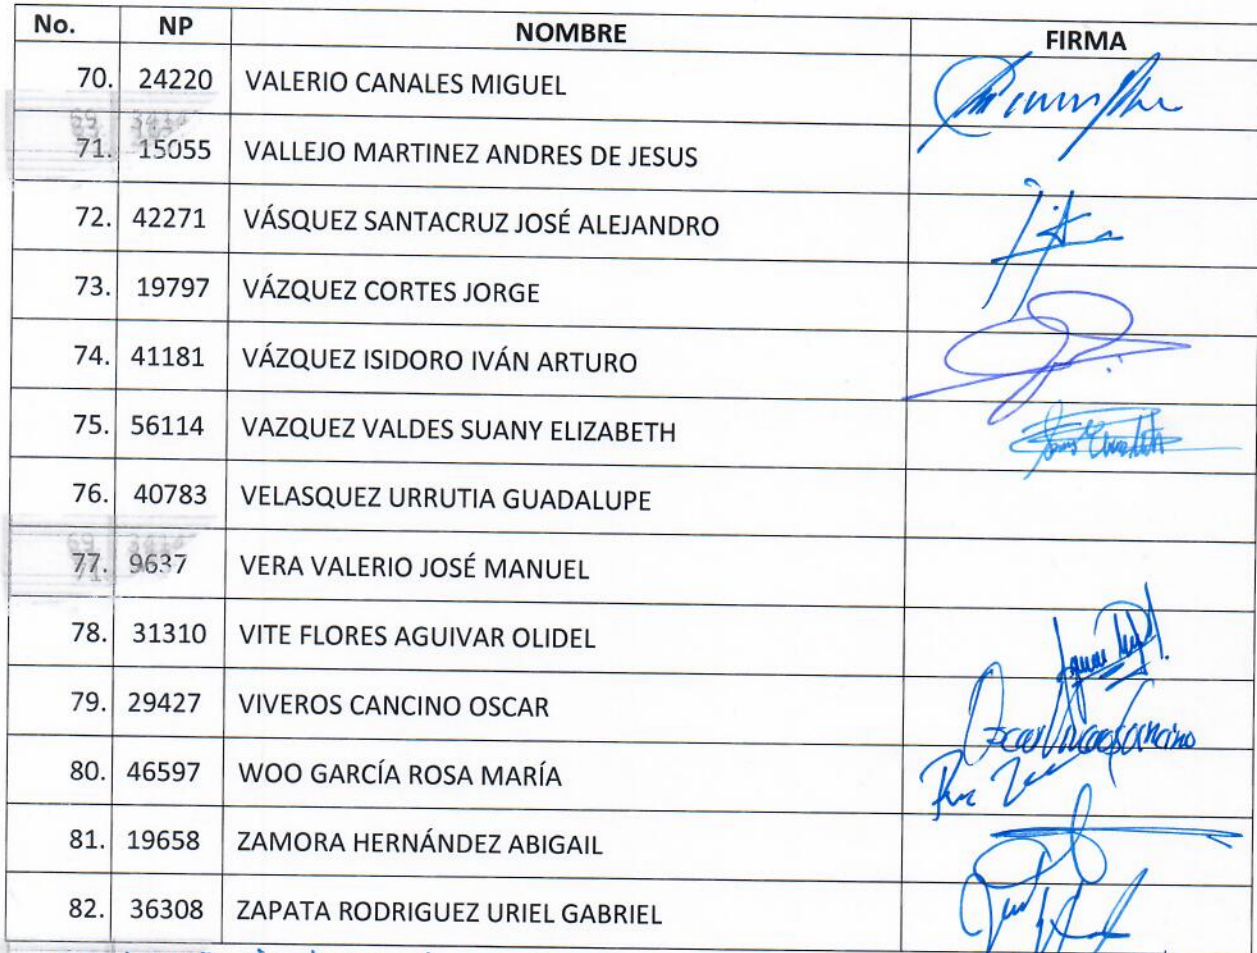 No. NP NOMBRE FIRMA
70. 24220 VALERIO CANALES MIGUEL
71. 15055 VALLEJO MARTINEZ ANDRES DE JESUS
72. 42271 VÁSQUEZ SANTACRUZ JOSÉ ALEJANDRO
73. 19797 VÁZQUEZ CORTES JORGE
74. 41181 VÁZQUEZ ISIDORO IVÁN ARTURO
75. 56114 VAZQUEZ VALDES SUANY ELIZABETH
76. 40783 VELASQUEZ URRUTIA GUADALUPE
77. 9637 VERA VALERIO JOSÉ MANUEL
78. 31310 VITE FLORES AGUIVAR OLIDEL
79. 29427 VIVEROS CANCINO OSCAR
80. 46597 WOO GARCÍA ROSA MARÍA
81. 19658 ZAMORA HERNÁNDEZ ABIGAIL
82. 36308 ZAPATA RODRIGUEZ URIEL GABRIEL